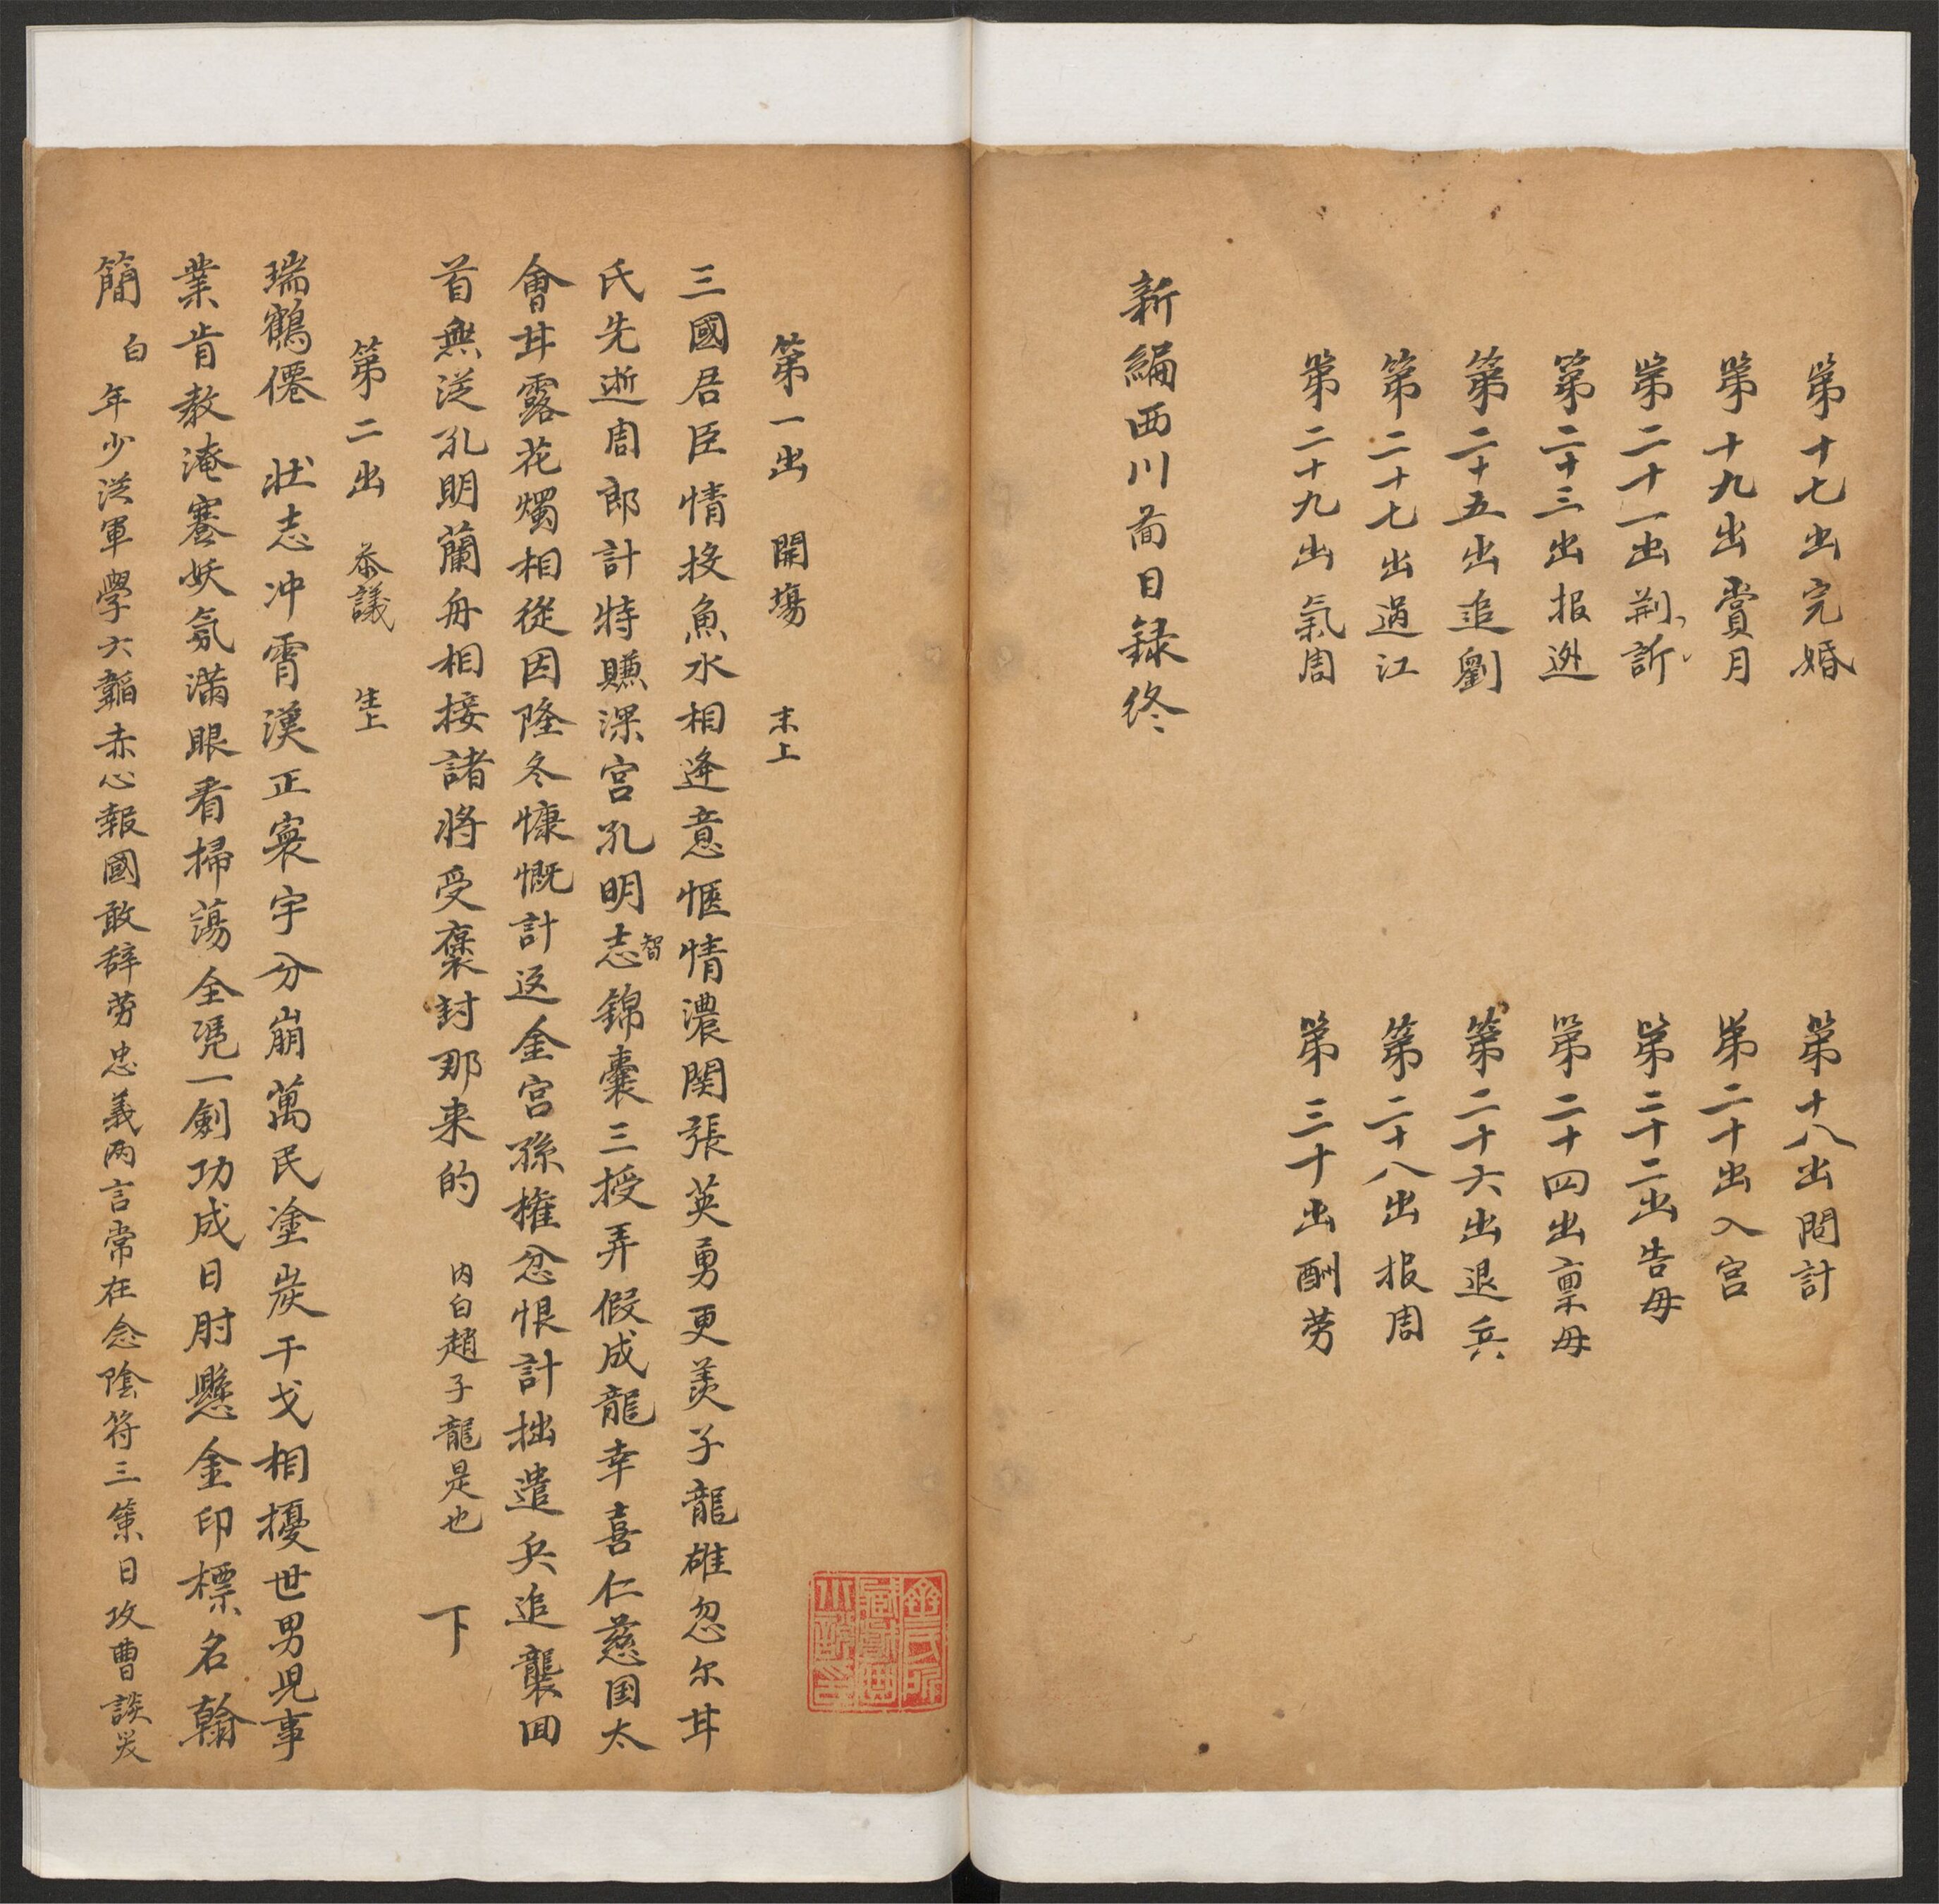 第十七出完婚　第十八出問計
第十九出賞月　第二十出入宮
第二十一出荆訢　第二十三出告母
第二十三出报逊　第二十四出禀母
第二十五出追劉　第二十六出退兵
第二十七出過江　第二十八出报周
第二十九出氣周　第三十出酬劳
新編西川啚目録终
第一出　開塲　末上
三國君臣情投魚水相逢意愜情濃関張英勇更羡子龍雄忽尔甘
氏先逝周郎計特賺深宮孔明志智錦囊三授弄假成龍幸喜仁慈国太
會甘露花燭相從因隆冬慷慨計返金宮孫権忿恨計拙遣兵追襲囬
首無涘孔明蘭舟相接諸將受褒封那来的　内白趙子龍是也　下
第二出　恭議　生上
瑞鶴僊　壯志冲霄漢正寰宇分崩萬民塗炭干戈相擾世男児事
業肯教淹蹇妖氛滿眼看掃蕩全凴一劍功成日肘懸金印標名翰
簡　白　年少従軍學六韜赤心報國敢辞劳忠義两言常在念陰符三策日攻曹談笑